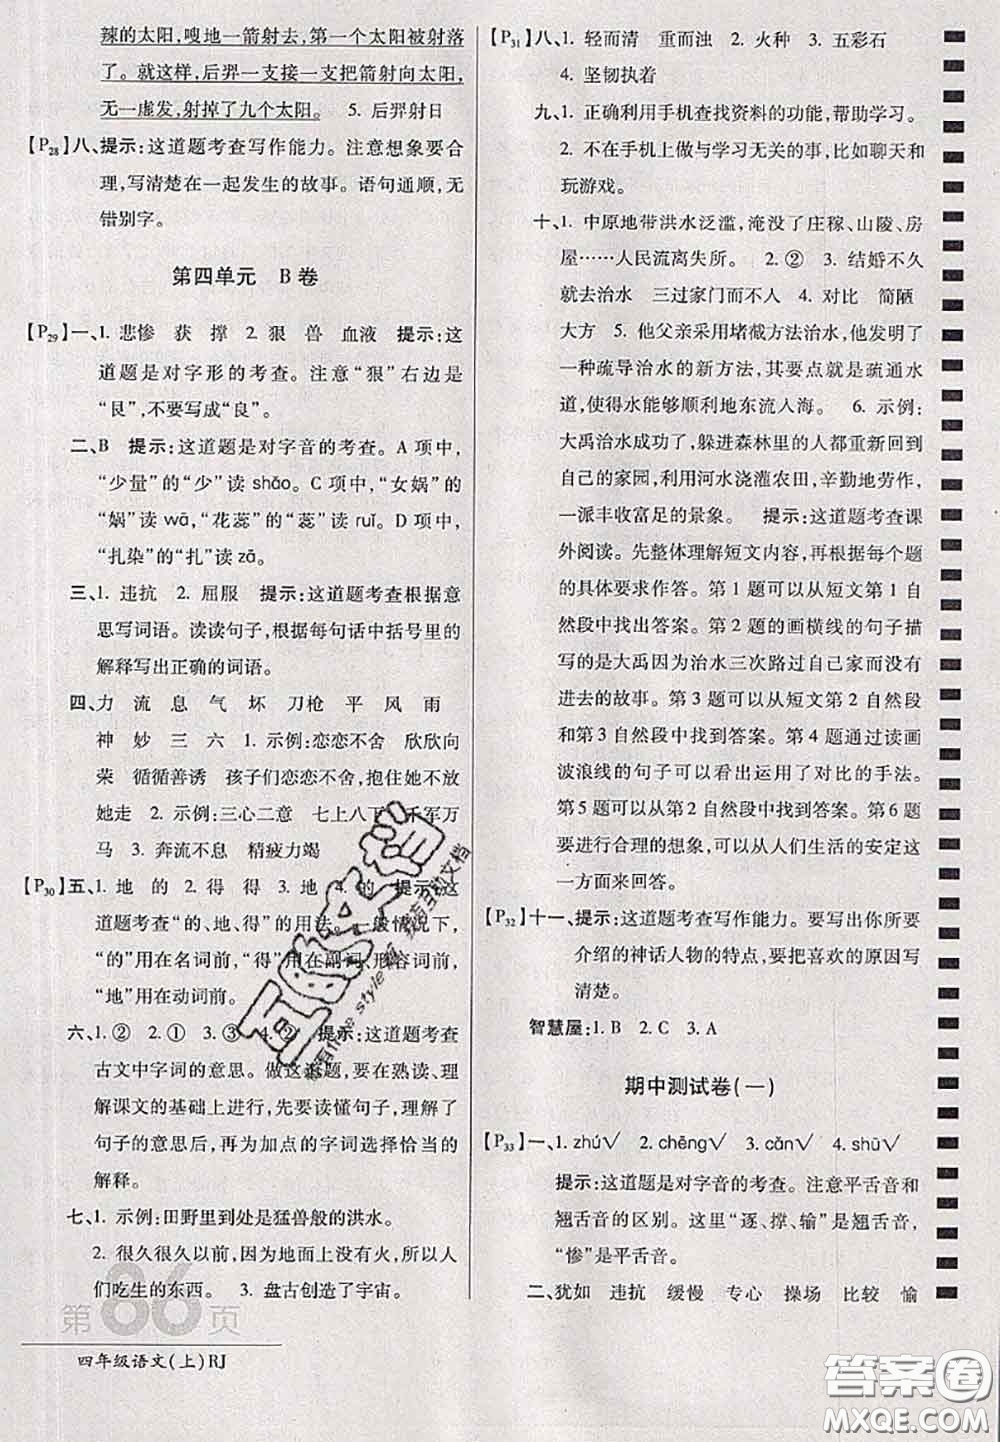 辣的太阳,嗖地一箭射去,第一个太阳被射落
了。就这样,后羿一支接一支把箭射向太阳,
无一虚发,射掉了九个太阳。 5. 后羿射日
【P28】八、提示:这道题考查写作能力。注意想象要合
理,写清楚在一起发生的故事。语句通顺,无
错别字。
第四单元 B卷
【P29】一、1. 悲惨 获 撑 2. 狠 兽 血液 提示:这
道题是对字形的考查。注意“狠”右边是
“艮”,不要写成“良”。
二、B 提示:这道题是对字音的考查。A 项中,
“少量”的“少”读 shǎo。C 项中,“女娲”的
“娲”读 wā,“花蕊”的“蕊”读 ruǐ。D 项中,
“扎染”的“扎”读 zā。
三、1. 违抗 2. 屈服 提示:这道题考查根据意
思写词语。读读句子,根据每句话中括号里的
解释写出正确的词语。
四、力 流 息 气 坏 刀枪 平 风 雨
神 妙 三 六 1. 示例:恋恋不舍 欣欣向
荣 循循善诱 孩子们恋恋不舍,抱住她不放
她走 2. 示例:三心二意 七上八下 千军万
马 3. 奔流不息 精疲力竭
【P30】五、1. 地 的 2. 得 得 3. 地 4. 的 提示:这
道题考查“的、地、得”的用法。一般情况下,
“的”用在名词前,“得”用在副词、形容词前,
“地”用在动词前。
六、1. ② 2. ① 3. ③ 4. ② 提示:这道题考查
古文中字词的意思。做这道题,要在熟读、理
解课文的基础上,先要读懂句子,大概了解
句子的意思后,再为加点的字词选择恰当的
解释。
七、1. 示例:田野里到处是猛兽般的洪水。
2. 很久很久以前,因为地面上没有火,所以人
们吃生的东西。 3. 盘古创造了宇宙。
第86页
四年级语文(上)RJ
【P31】八、1. 轻而清 重而浊 2. 火种 3. 五彩石
4. 坚韧执着
九、1. 正确利用手机查找资料的功能,帮助学习。
2. 不在手机上做与学习无关的事,比如聊天和
玩游戏。
十、1. 中原地带洪水泛滥,淹没了庄稼、山陵、房
屋……人民流离失所。 2. ② 3. 结婚不久
就去治水 三过家门而不入 4. 对比 简陋
大方 5. 他父亲采用堵截方法治水,他发明了
一种疏导治水的新方法,其要点就是疏通水
道,使得水能够顺利地东流入海。 6. 示例:
大禹治水成功了,躲进森林里的人都重新回到
自己的家园,利用河水浇灌农田,辛勤地劳作,
一派丰收富足的景象。 提示:这道题考查课
外阅读。先整体理解短文内容,再根据每个题
的具体要求作答。第 1 题可以从短文第 1 自
然段中找出答案。第 2 题的画横线的句子描
写的是大禹因为治水三次路过自己家而没有
进去的故事。第 3 题可以从短文第 2 自然段
和第 3 自然段中找到答案。第 4 题通过读画
波浪线的句子可以看出运用了对比的手法。
第 5 题可以从第 2 自然段中找到答案。第 6 题
要进行合理的想象,可以从人们生活的安定这
一方面来回答。
【P32】十一、提示:这道题考查写作能力。要写出你所要
介绍的神话人物的特点,要把喜欢的原因写
清楚。
智慧屋:1. B 2. C 3. A
期中测试卷(一)
【P33】一、1. zhú√ 2. chēng√ 3. cǎn√ 4. shū√
提示:这道题是对字音的考查。注意平舌音和
翘舌音的区别。这里“逐、撑、输”是翘舌音,
“惨”是平舌音。
二、犹如 违抗 缓慢 专心 操场 比较 愉
答案圈
MXQE.COM